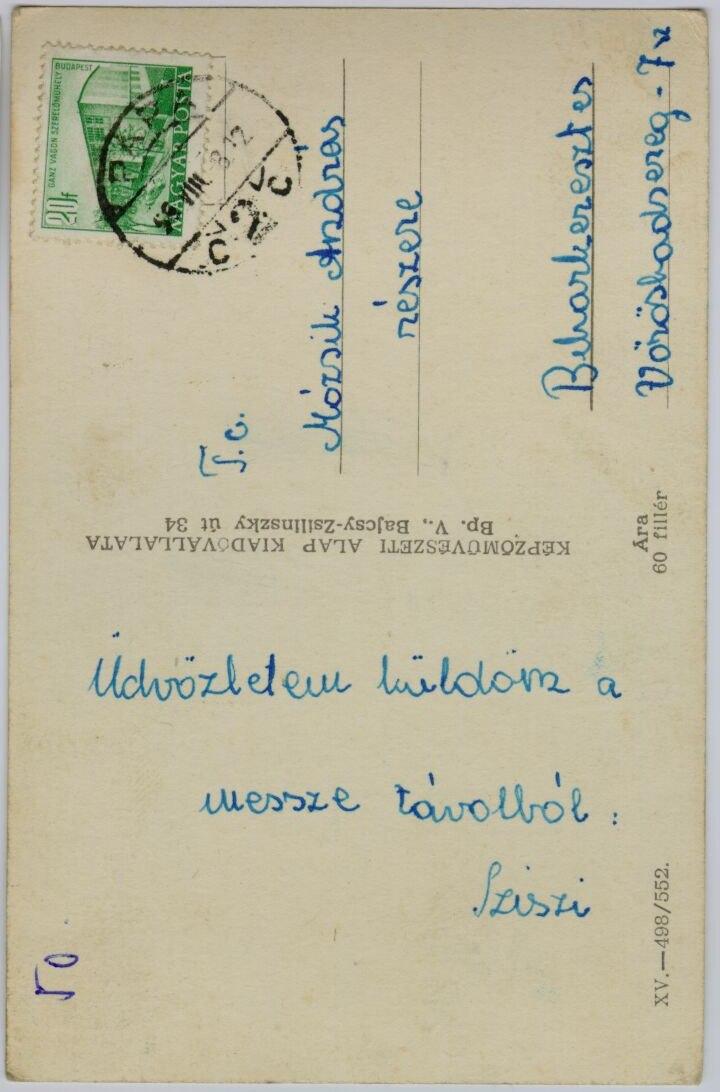 BUDAPEST
GANZ VAGON SZERELŐMŰHELY
MAGYAR POSTA
20f
T.c.
Mózsik András
részére
Biharkeresztes
Vöröshadsereg-7u
KÉPZŐMŰVÉSZETI ALAP KIADÓVÁLLALATA
Bp. V., Bajcsy-Zsilinszky út 34
Ára
60 fillér
Üdvözletem küldöm a
messze távolból:
Sziszi
XV.—498/552.